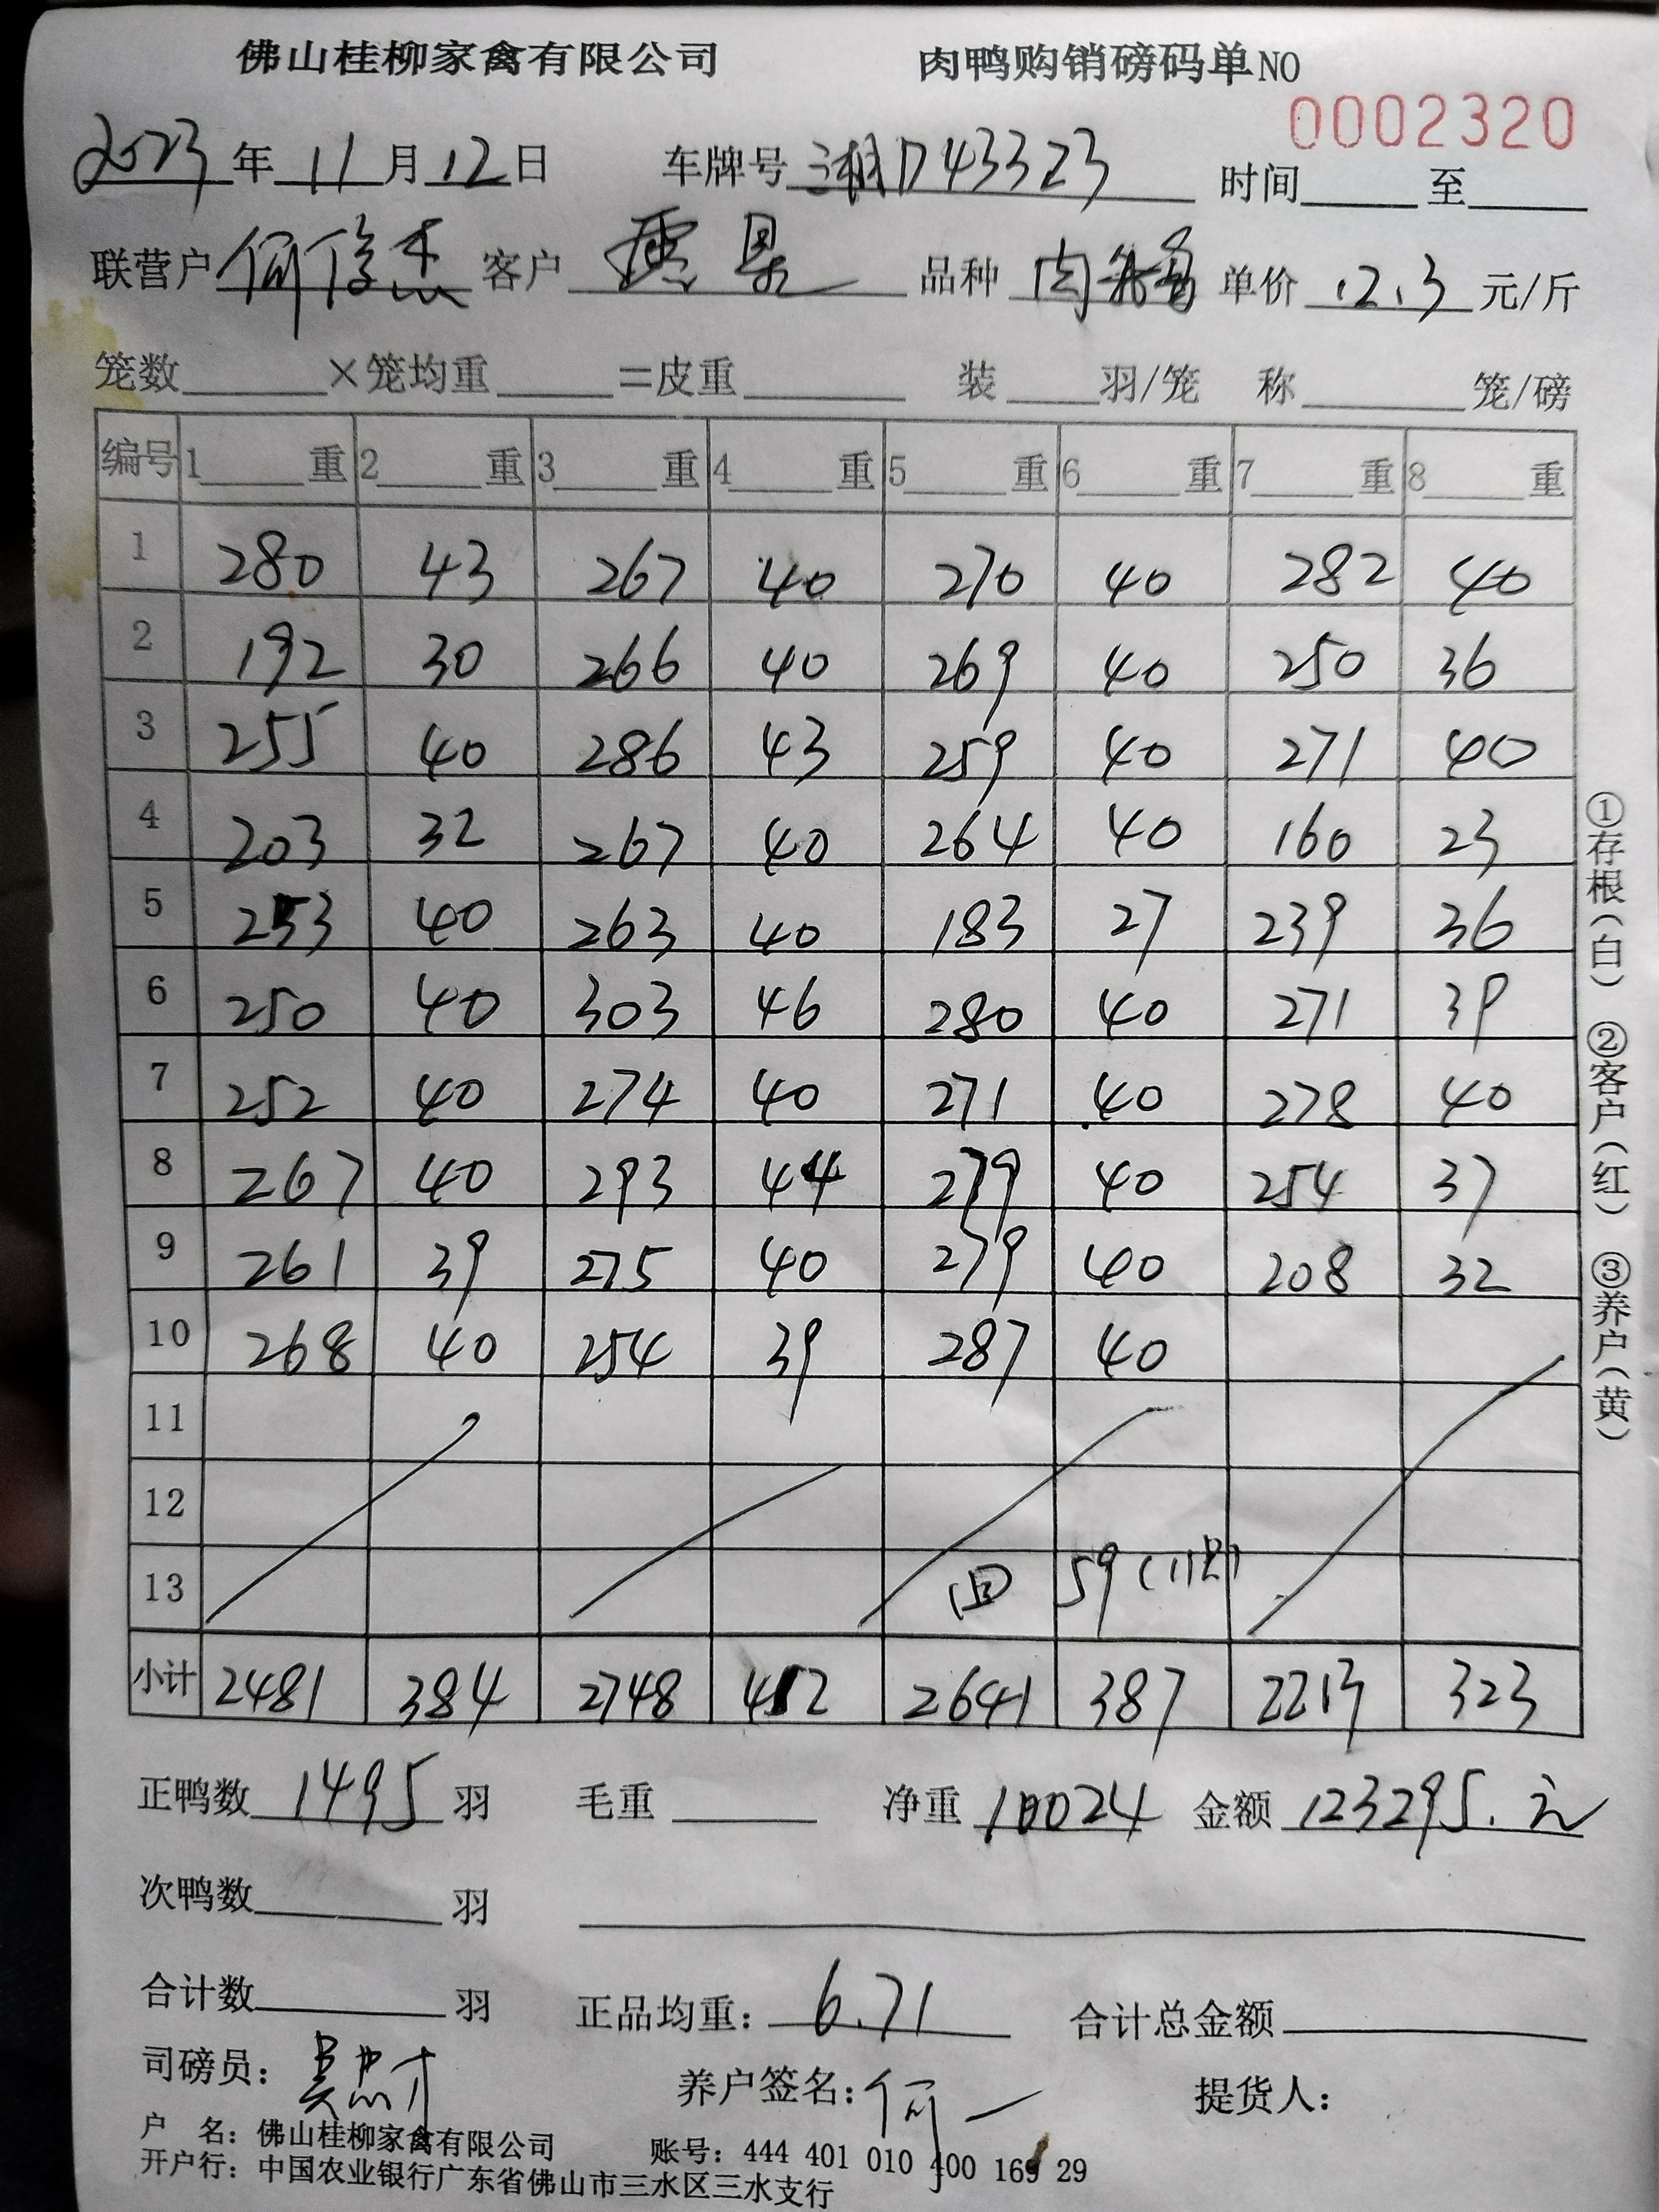 佛山桂柳家禽有限公司 肉鸭购销磅码单NO
0002320
2023年11月12日 车牌号湘D43323 时间 至
联营户何俊杰 客户 品种肉 单价12.3元/斤
笼数 ×笼均重 =皮重 装 羽/笼 称 笼/磅
编号 1 重 2 重 3 重 4 重 5 重 6 重 7 重 8 重
1 280 43 267 40 270 40 282 40
2 192 30 266 40 269 40 250 36
3 255 40 286 43 259 40 271 40
4 203 32 267 40 264 40 160 23
5 253 40 263 40 183 27 239 36
6 250 40 303 46 280 40 271 39
7 252 40 274 40 271 40 278 40
8 267 40 293 44 279 40 254 37
9 261 39 275 40 279 40 208 32
10 268 40 254 39 287 40
11
12
13 回 59(11只)
小计 2481 384 2748 412 2641 387 2213 323
正鸭数1495羽 毛重 净重10024 金额123295.元
次鸭数 羽
合计数 羽 正品均重:6.71 合计总金额
司磅员: 养户签名:何 提货人:
户 名:佛山桂柳家禽有限公司 账号:444 401 010 400 169 29
开户行:中国农业银行广东省佛山市三水区三水支行
①存根(白) ②客户(红) ③养户(黄)